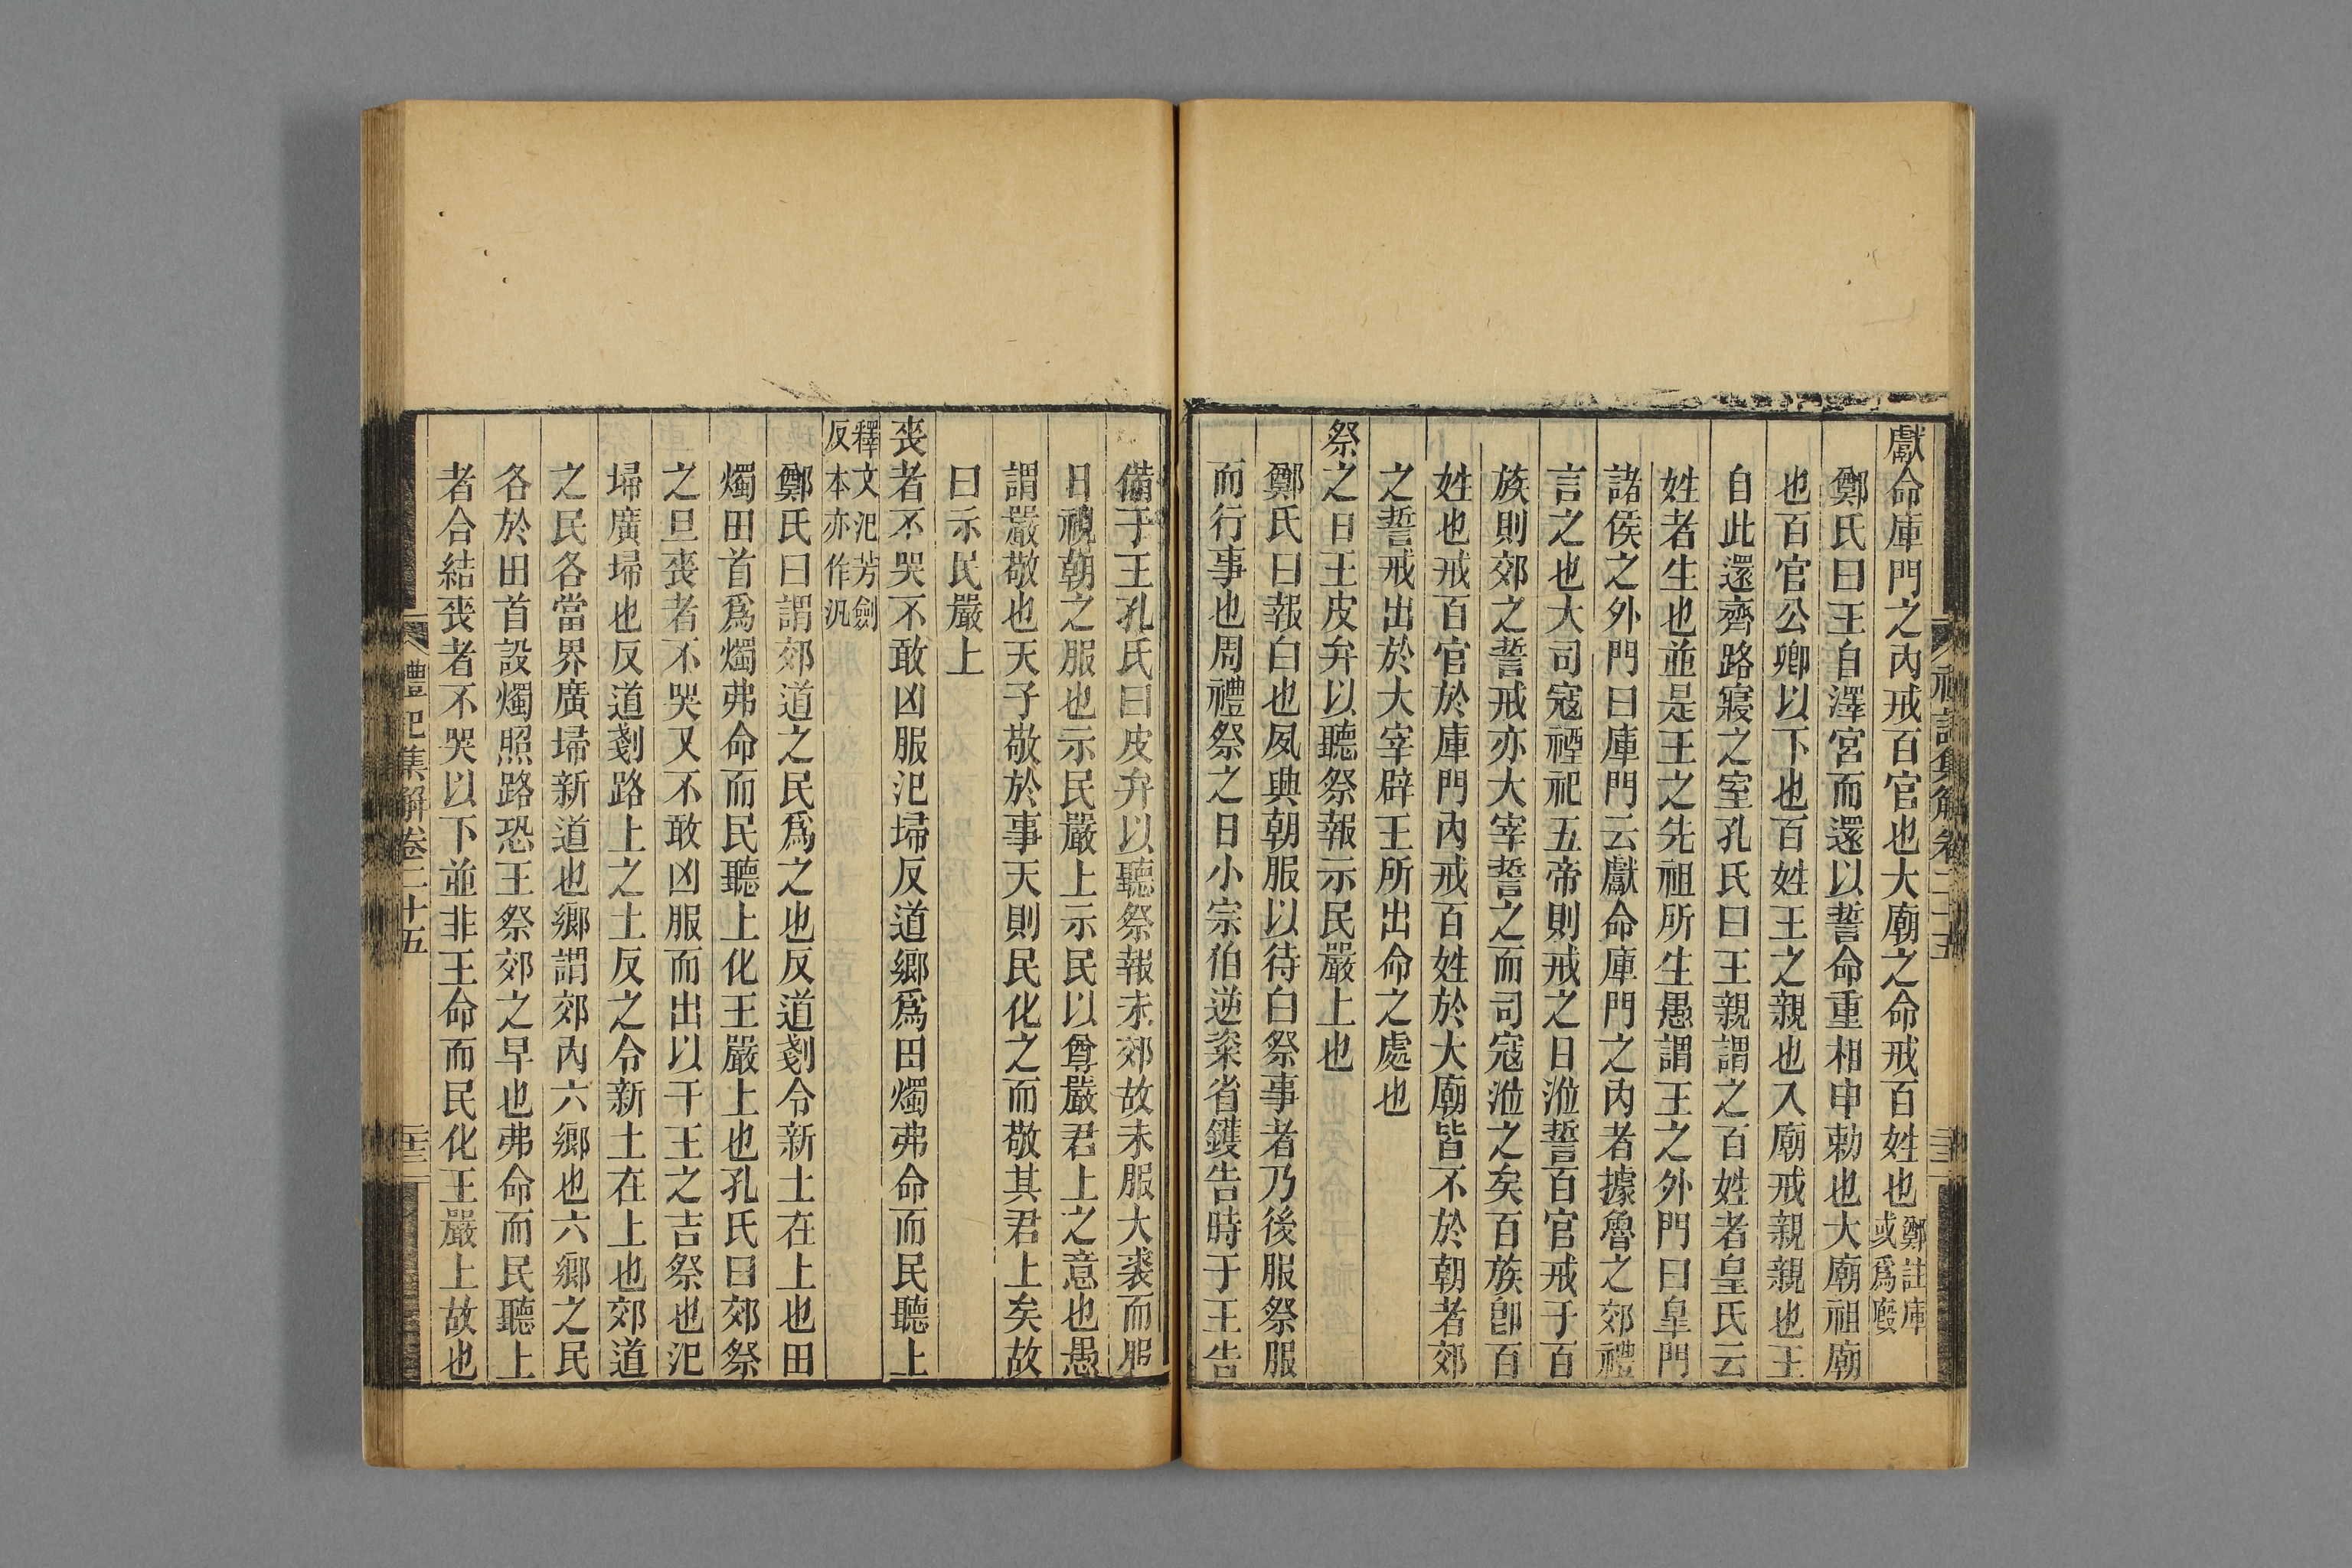 獻命庫門之內戒百官也大廟之命戒百姓也鄭註庫或爲廏
鄭氏曰王自澤宮而還以誓命重相申勅也大廟祖廟
也百官公卿以下也百姓王之親也入廟戒親親也王
自此還齊路寢之室孔氏曰王親謂之百姓者皇氏云
姓者生也並是王之先祖所生愚謂王之外門曰皐門
諸侯之外門曰庫門云獻命庫門之內者據魯之郊禮
言之也大司寇禋祀五帝則戒之日涖誓百官戒于百
族則郊之誓戒亦大宰誓之而司寇涖之矣百族卽百
姓也戒百官於庫門內戒百姓於大廟皆不於朝者郊
之誓戒出於大宰辟王所出命之處也
祭之日王皮弁以聽祭報示民嚴上也
鄭氏曰報白也夙興朝服以待白祭事者乃後服祭服
而行事也周禮祭之日小宗伯逆粢省鑊告時于王告
備于王孔氏曰皮弁以聽祭報未郊故未服大裘而服
日視朝之服也示民嚴上示民以尊嚴君上之意也愚
謂嚴敬也天子敬於事天則民化之而敬其君上矣故
曰示民嚴上
喪者不哭不敢凶服氾埽反道鄉爲田燭弗命而民聽上
釋文氾芳劍反本亦作汎
鄭氏曰謂郊道之民爲之也反道剗令新土在上也田
燭田首爲燭弗命而民聽上化王嚴上也孔氏曰郊祭
之旦喪者不哭又不敢凶服而出以干王之吉祭也氾
埽廣埽也反道剗路上之土反之令新土在上也郊道
之民各當界廣埽新道也鄉謂郊內六鄉也六鄉之民
各於田首設燭照路恐王祭郊之早也弗命而民聽上
者合結喪者不哭以下並非王命而民化王嚴上故也
禮記集解卷二十五